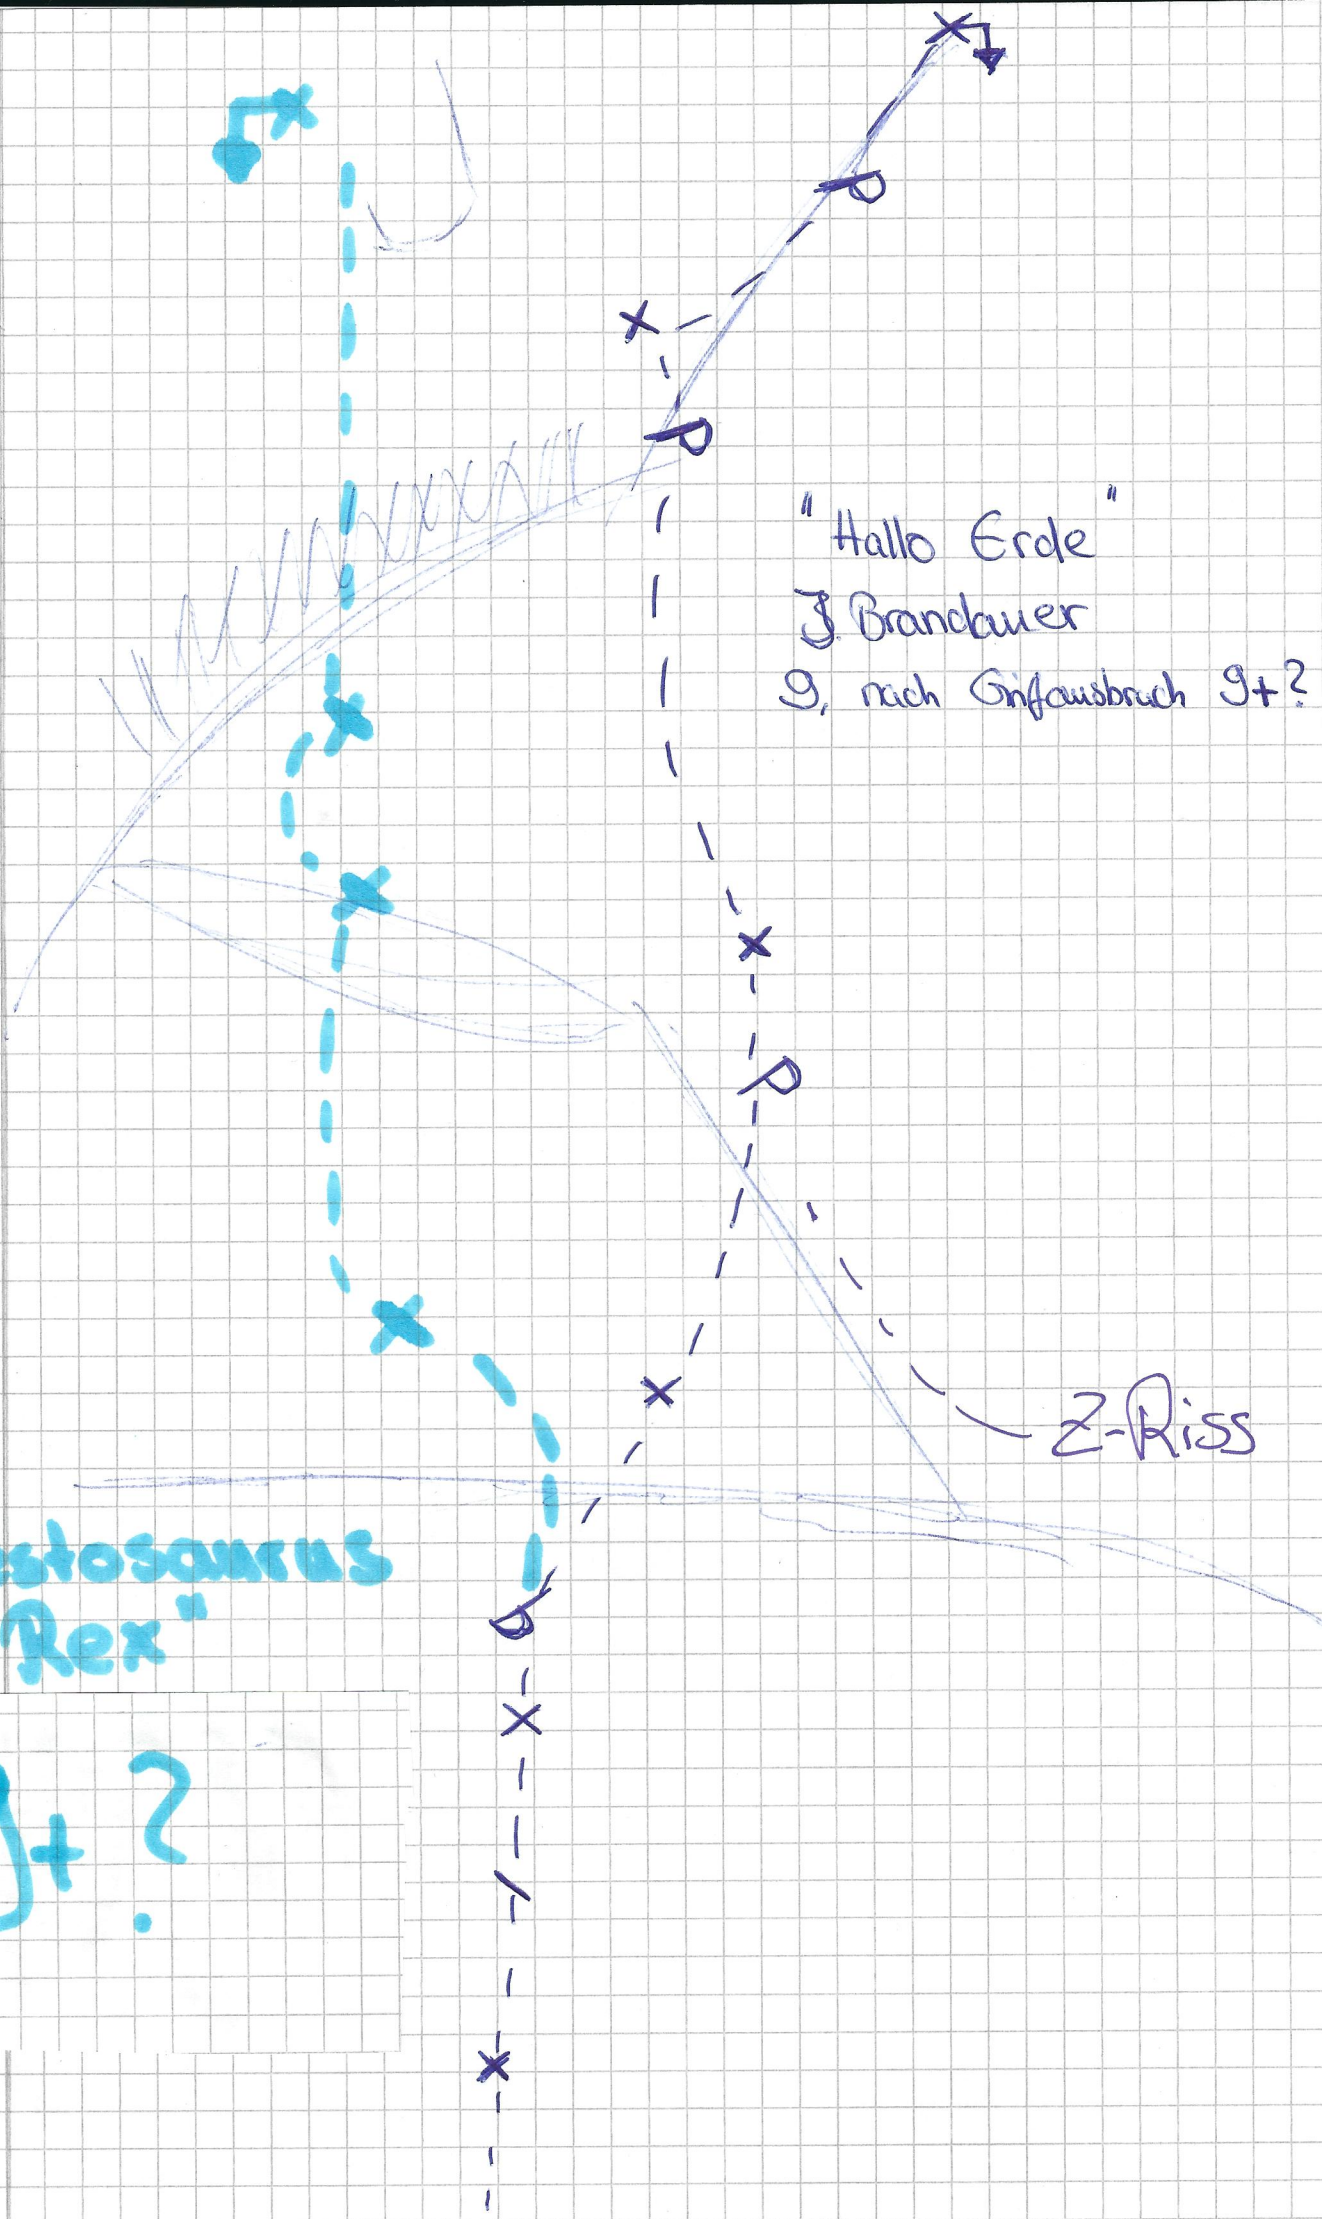 "Hallo Erde"
J. Brandauer
9, nach Griffausbruch 9+?
Z-Riss
stosaurus
Rex"
9+ ?